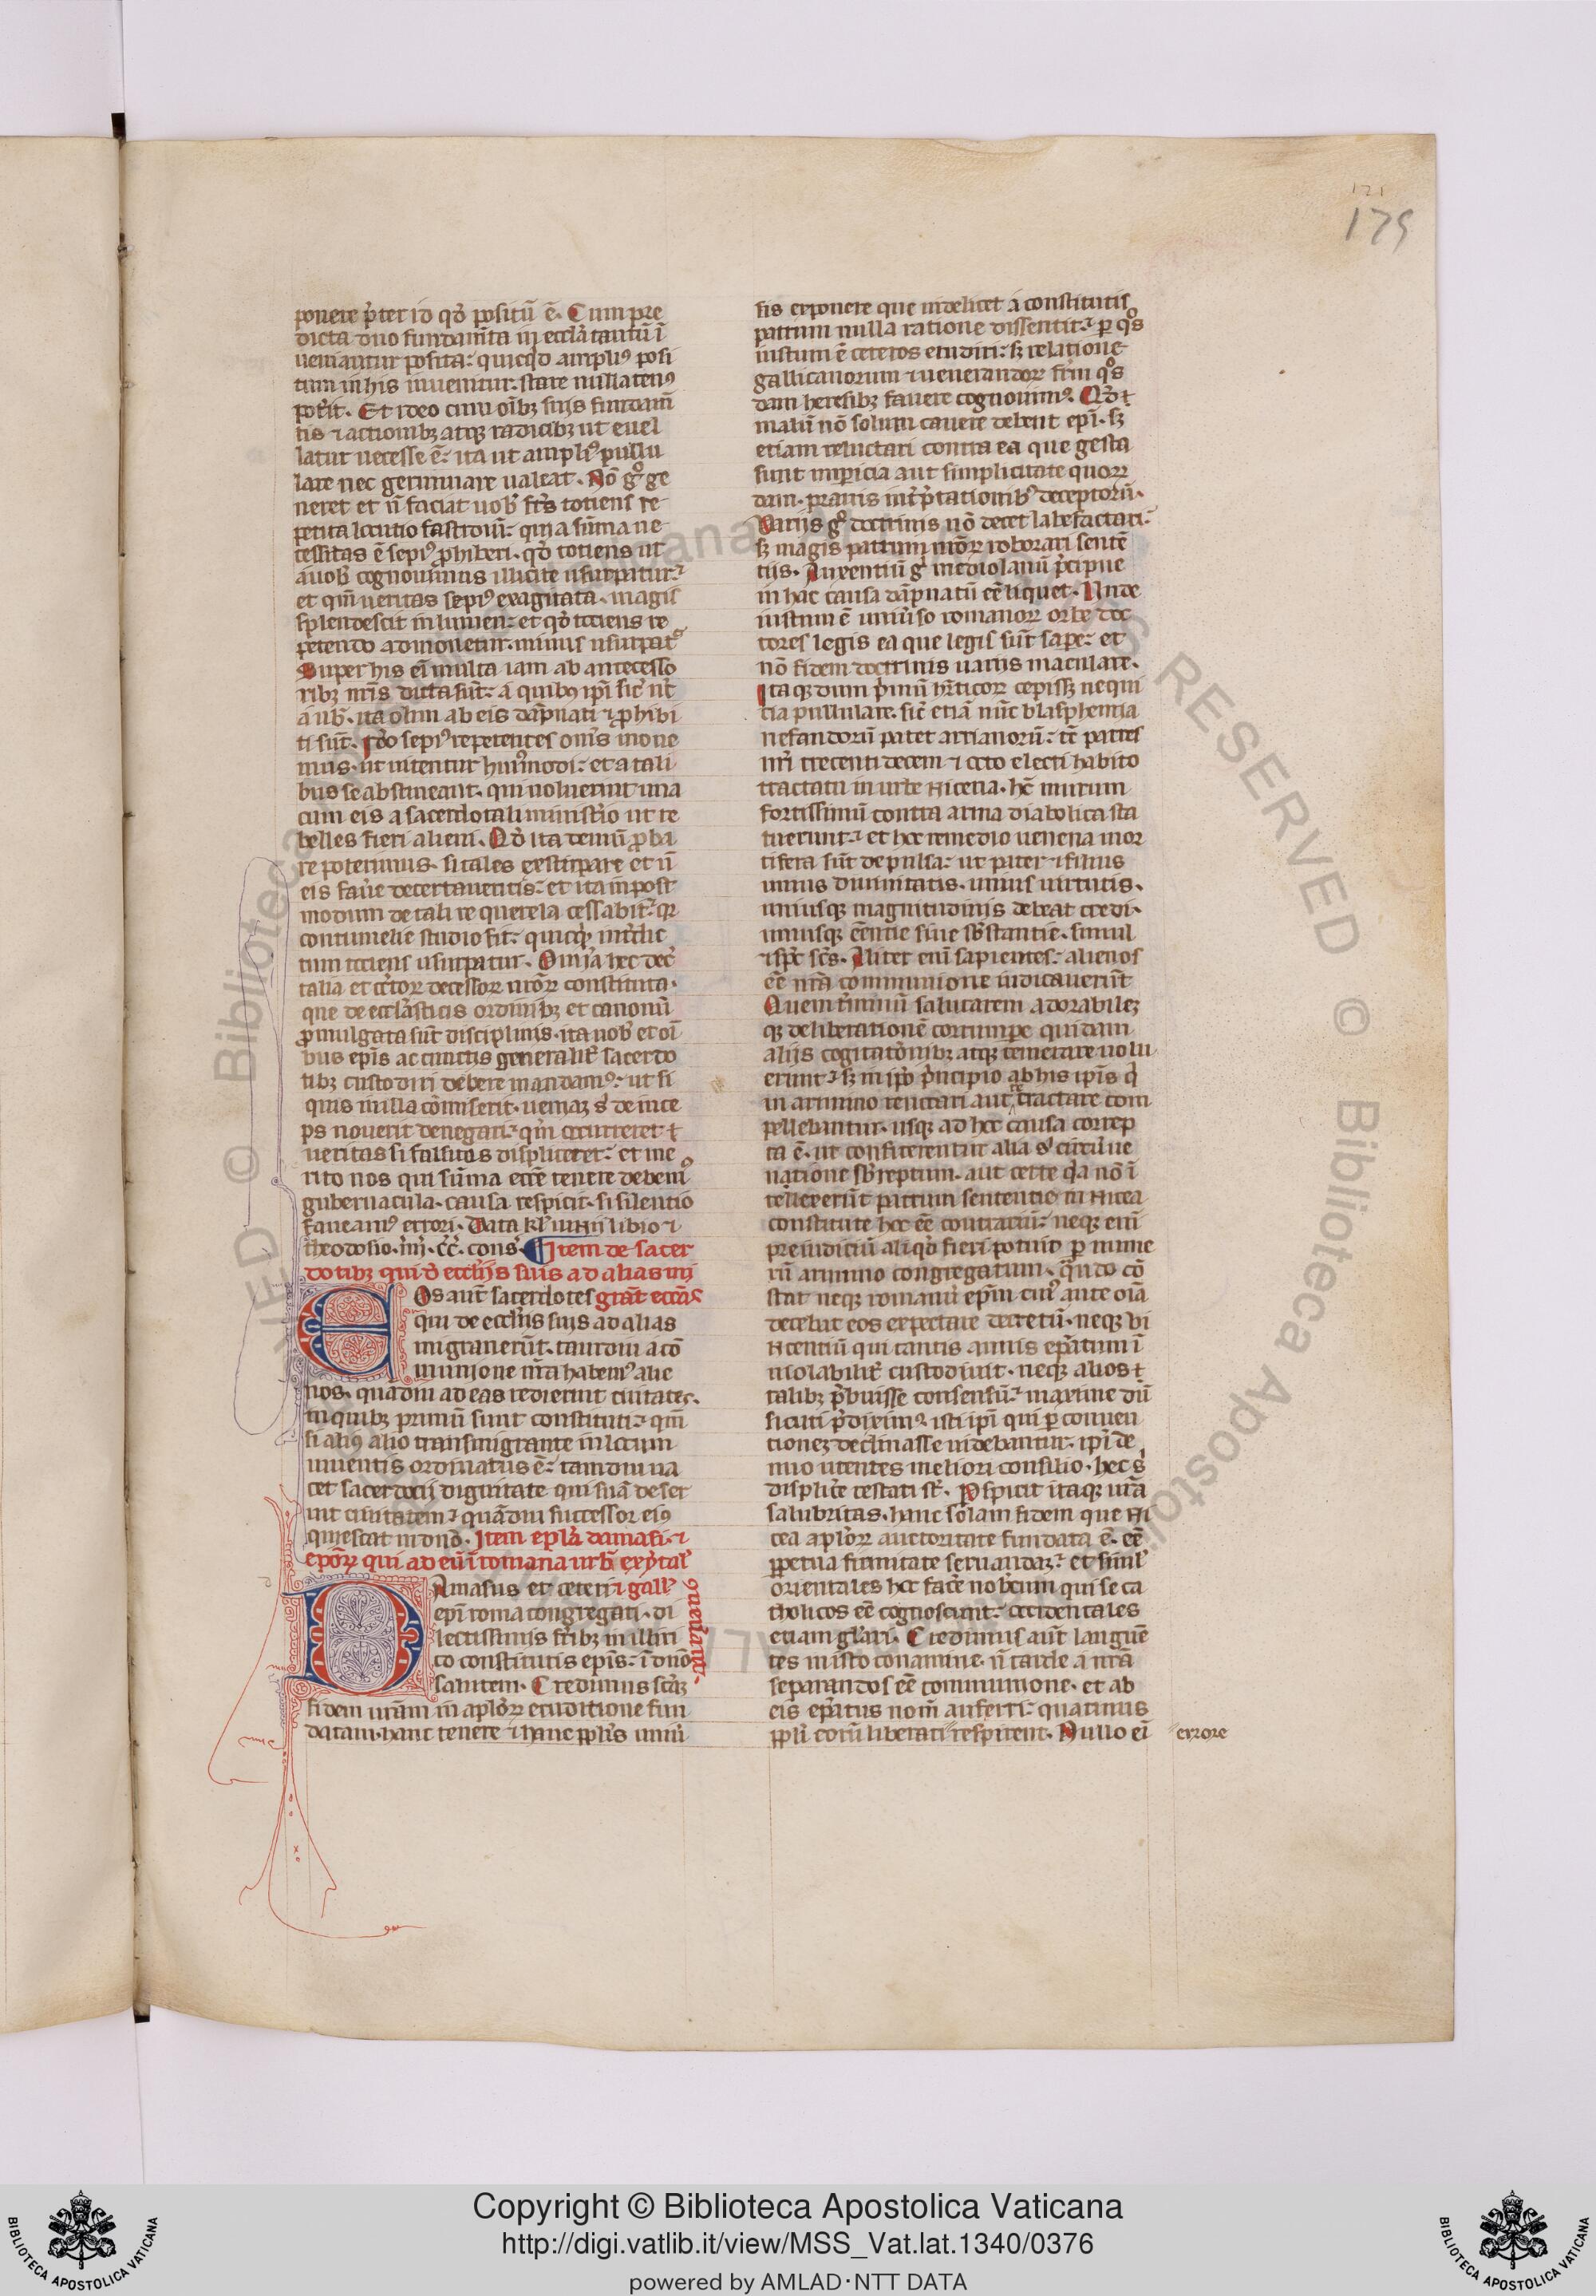 121
179
ponere p̄ter id qd̓ positū ē. Cum pre
dicta duo fundam̄ta in eccl̓a tantū ī
ueniantur posita: quicq̓d ampliꝰ posi
tum in his inuenitur: stare nullatenꝰ
pot̓it. Et ideo cum oībꝫ suis fundam̄
tis ⁊ actionibꝫ atqꝫ radicibꝫ ut euel
latur necesse ē: ita ut ampliꝰ pullu
lare nec germinare ualeat. Nō gͦ ge
neret et ū faciat uob̓ fr̄s totiens re
petita locutio fastidiū: quia sūma ne
cessitas ē sepiꝰ ꝓhiberi. qd̓ totiens ut
a uob̓ cognouimus illicite usurpatur:
et qm̄ ueritas sepiꝰ exagitata. magis
splendescit in lumen: et qd̓ totiens re
petendo admonetur. minus usurpat᷑
Super his eī multa iam ab antecesso
ribꝫ nr̄is dicta sūt: a quibꝰ ip̄i sic̓ nc̄
a nob̓. ita olim ab eis dāpnati ⁊ ꝓhibi
ti sūt. Ido sepiꝰ repetentes om̄s mone
mus. ut uitentur huiꝰmodi: et a tali
bus se abstineant. qui noluerint una
cum eis a sacerdotali minist̓io ut re
belles fieri alieni. Qd̓ ita demū ꝓba
re poterimus. si tales exstirpare et ū
eis fau̓e decertaueritis: et ita in post
modum de tali re querela cessabit: qꝛ
contumelie studio fit: quicq̓d int̓dic
tum totiens usurpatur. Om̄ia hec dec̓
talia et cet̓oꝝ decessoꝝ nr̄oꝝ constituta.
que de eccl̓asticis ordinibꝫ et canonū
ꝓmulgata sūt disciplinis. ita uob̓ et oī
bus ep̄is ac cunctis generalit̓ sacerdo
tibꝫ custodiri debere mandamꝰ: ut si
quis in illa cōmiserit. ueniaꝫ s̓ deince
ps nouerit denegari: qm̄ occurreret ⁊
ueritas si falsitas displiceret: et me
rito nos qui sūma eccl̓e tenere debemꝰ
gubernacula. causa respicit. si silentio
faueamꝰ errori. Data kl̓ iunij libio ⁊
theodosio. iiij. cc̄. cons̓. Item de sacer
dotibꝫ qui d̓ eccl̓ijs suis ad alias mi
grāt eccl̓as
Eos aut̄ sacerdotes
qui de eccl̓iis suis ad alias
migrauerūt. tamdiu a cō
munione nr̄a habemꝰ alie
nos. quamdiu ad eas redierint ciuitates.
in quibꝫ primū sunt constituti: qm̄
si aliꝰ alio transmigrante in locum
uiuentis ordinatus ē: tamdiu ua
cet sacerdocij dignitate qui suā deser
uit ciuitatem: quādiu successor eiꝰ
quiescat in dn̄o. Item epl̓a damasi. ⁊
ep̄oꝝ qui ad eū ī romana urb̓
Damasus et ceteri ⁊ gall̓
ep̄i roma congregati. di
lectissimis fr̄ibꝫ in illiri
co constitutis ep̄is: ī dn̄o
salutem. Credimus sc̄aꝫ
fidem ur̄am in apl̓oꝝ eruditione fun
datam. hanc tenere ⁊ hanc ppl̓is uniu̓
sis exponere que uidelicet a constitutis
patrum nulla ratione dissentit: per qͦs
iustum ē ceteros erudiri: sꝫ relatione
gallicanorum ⁊ uenerandoꝝ fr̄m qͦs
dam heresibꝫ fauere cognouimꝰ. Qd̓
malū nō solum cauere debent ep̄i. sꝫ
etiam reluctari contra ea que gesta
sunt imp̓icia aut simplicitate quoꝝ
dam. prauis int̓p̄tationibꝰ deceptorū.
Varijs gͦ doctrinis nō decet labefactari:
sꝫ magis patrum nr̄oꝝ roborari sentē
tiis. Auxentiū gͦ mediolanū p̄cipue
in hac causa dāpnatū ēe liquet. Unde
iustum ē uniu̓so romanoꝝ orbe doc
tores legis ea que legis sūt sape: et
nō fidem doctrinis uariis maculare.
Itaqꝫ dum p̓mū hr̄ticoꝝ cepissꝫ nequi
tia pullulare. sic̄ etiā nūc blasphemia
nefandorū patet arrianorū: tc̄ patres
nr̄i trecenti decem ⁊ octo electi habito
tractatu in urbe nicena. hc̄ murum
fortissimū contra arma diabolica sta
tuerunt: et hoc remedio uenena mor
tifera sūt depulsa: ut pater ⁊ filius
unius diuinitatis. unius uirtutis.
uniusqꝫ magnitudinis debeat credi.
uniusqꝫ eēntie siue sb̓stantie. simul
⁊ sp̄c sc̄s. Aliter eni sapientes: alienos
ēe nr̄a communione iudicauerūt
Quem t̓minū salutarem adorabileꝫ
qꝫ deliberationē corrumpe quidam
alijs cogitatōnibꝫ atqꝫ temerare uolu
erunt: sꝫ in ip̄o p̓ncipio ab his ip̄is q̓
in arimino retractari aut tractare com
pellebantur. usqꝫ ad hec causa correp
ta ē. ut confiterentur alia s̓ circūue
natione sb̓reptum. aut certe q̓a nō ī
tellexerūt patrum sententie in nicea
constitute hec ēe contrariū: neqꝫ enī
preiudiciū aliqd̓ fieri potuit per nume
rū arimino congregatum. qn̄do cō
stat neqꝫ romanū ep̄m cuiꝰ ante oīa
decebat eos expectare decretū. neqꝫ ui
ncentiū qui tantis annis ep̄atum ī
uiolabilit̓ custodiuit. neqꝫ alios
talibꝫ p̓buisse consensū: maxime dū
sicuti p̓diximꝰ isti ip̄i qui per conuen
tioneꝫ declinasse uidebantur. ip̄i de
nuo utentes meliori consilio. hec s̓
displic̓e testati st̄. Aspicit itaqꝫ ur̄a
salubritas. hanc solam fidem que ni
cea apl̓oꝝ auctoritate fundata ē. ēe
ꝑpetua firmitate seruandaꝫ: et simul̓
orientales hec fac̓e nobcum qui se ca
tholicos ēe cognoscunt: occidentales
etiam gl̓ari. Credimus aūt languē
tes in isto conamine. ū tarde a nr̄a
separandos ēe communione. et ab
eis ep̄atus nom̄ auferri: quatinus
ppl̓i eorū liberati respirent. Nullo eī
errore
Copyright © Biblioteca Apostolica Vaticana
http://digi.vatlib.it/view/MSS_Vat.lat.1340/0376
powered by AMLAD·NTT DATA
BIBLIOTECA APOSTOLICA VATICANA
BIBLIOTECA APOSTOLICA VATICANA